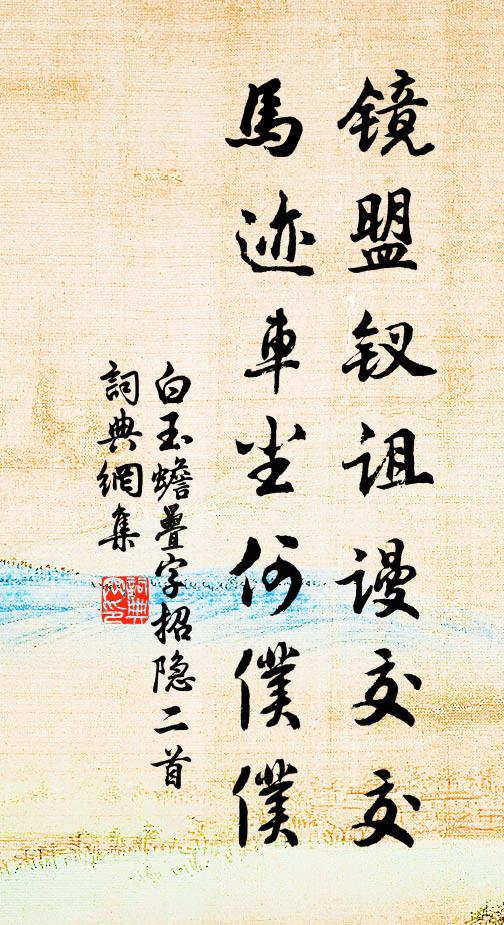 镜盟钗诅谩交交
馬迹車尘何僕僕
白玉蟾疊字招隐二首
詞典網集